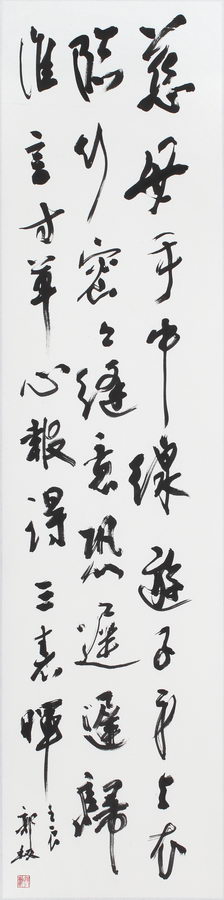 慈母手中線遊子身上衣
臨行密々縫意恐遲遲歸
誰言寸草心報得三春暉
郭